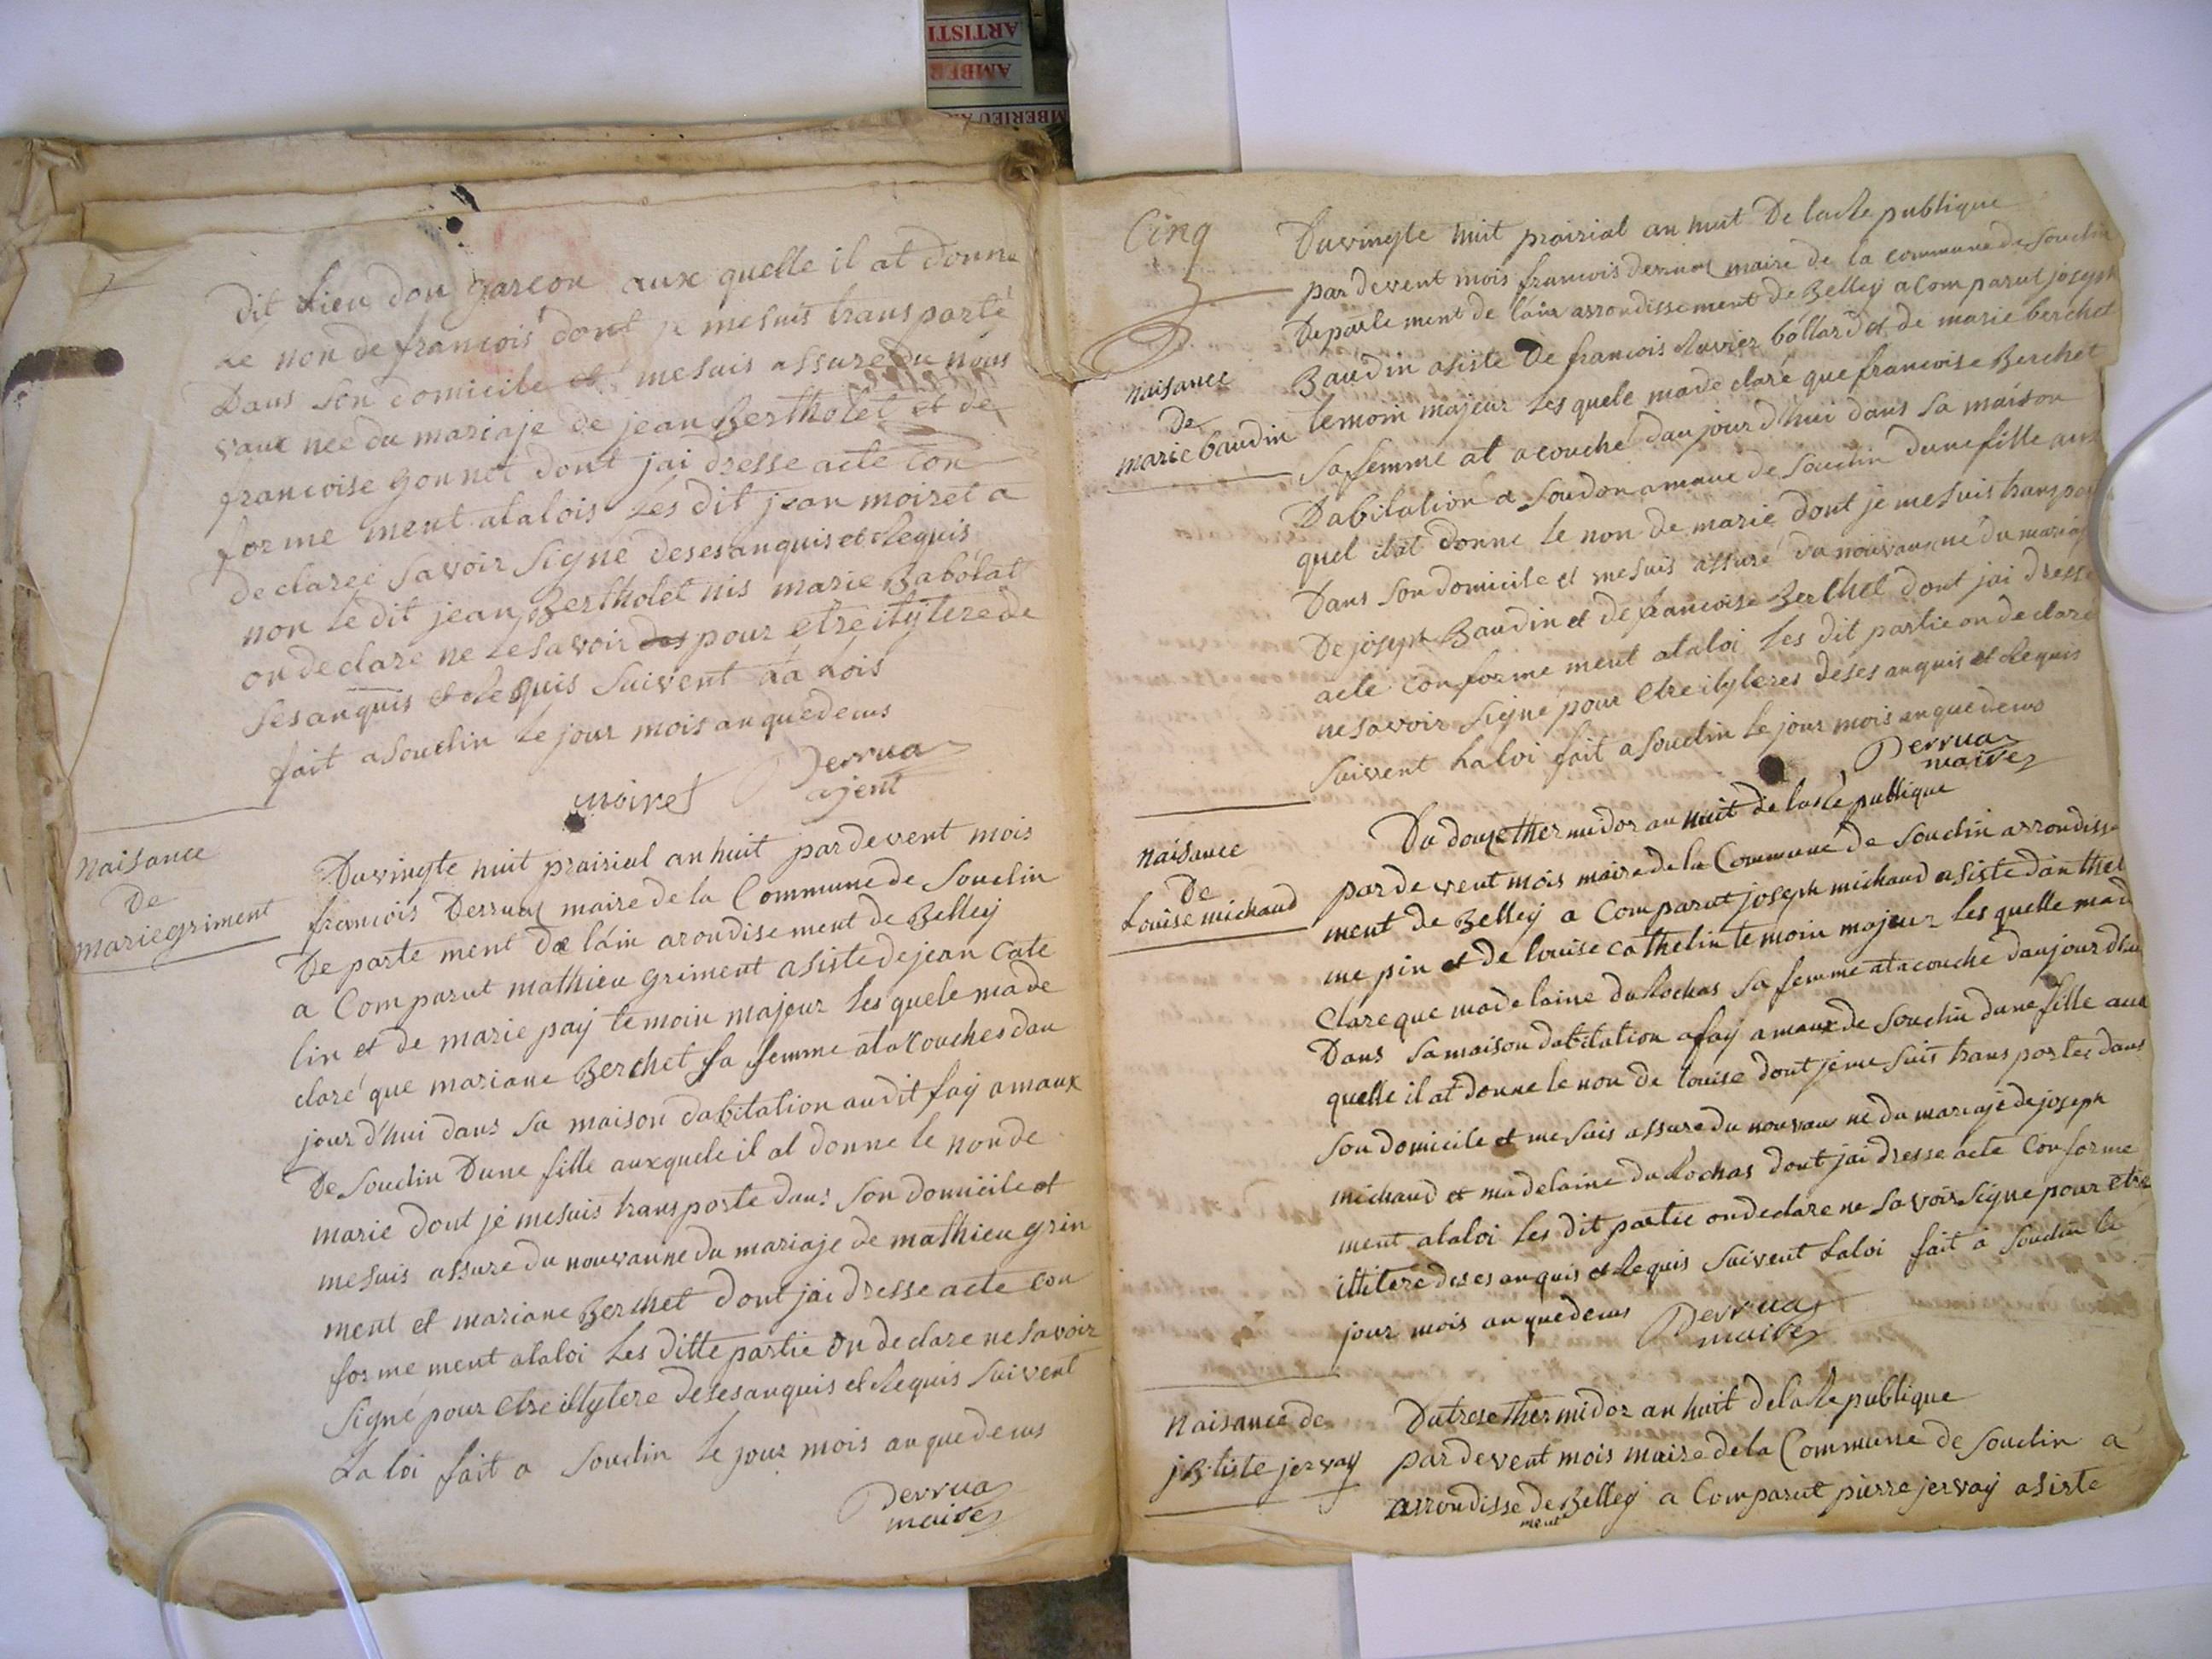 ARTISTI
AMBER
MBERIEU
dit Lieu don garcon aux quelle il at donne
le non de francois dont je me suis transporté
Dans son domicile et me suis assure du nous
vaux nee du mariaje de jean Bertholet et de
francoise gonnet dont jai dresse acte con
forme ment alalois Les dit jean moiret a
declaree savoir signe desesanquis et Requis
non le dit jean Bertholet nis marie Babolat
on declare ne le savoir des pour etre ilytere de
sesanquis et Requis suivent La Lois
fait a souclin le jour mois an quedeus
moiret Derrua
ajent
Naisance
De
marie griment
Du vingte huit prairial an huit pardevent mois
francois Derruaz maire de la Commune de Souclin
De parte ment de láin arondisement de Belleÿ
a Comparut mathieu griment asiste de jean Cate
lin et de marie paÿ temoin majeur Les quele ma de
claré que mariane Berchet sa femme at acouches dau
jour d'hui dans sa maison dabitation au dit faÿ amaux
De Souclin Dune fille auxquele il at donne le non de
marie dont je mesuis transporte dans son domicile et
mesuis assure du nouvaune du mariaje de mathieu grin
ment et mariane Berchet dont jai dresse acte con
forme ment alaloi Les ditte partie on declare ne savoir
signé pour etre illytere desesanquis et Requis suivent
La loi fait a Souclin le jour mois an quedeus
Derrua
maire
Cinq
Du vingte huit prairial an huit De la Re publique
par devent mois francois derruaz maire de la commune de Souclin
Departement de láin arrondissement de Belleÿ a Com parut joseph
Baudin asiste De francois Ruvier bollard et de marie berchet
Naisance
De
marie baudin
temoin majeur Les quele ma de claré que francoise Berchet
sa femme at acouché daujourd'hui dans sa maison
Dabitation a Soudon amaux de Souclin dune fille aux
quel il at donne le non de marie dont je me suis transpor
Dans son domicile et mesuis assuré du nouvaux né du mariaj
De joseph Baudin et de francoise Berchet dont jai dresse
acte conforme ment alaloi Les dit partie on declare
ne savoir signé pour etre ilyteres desesanquis et Requis
suivent La loi fait a Souclin le jour mois an quedeus
Derrua
maire
Naisance
De
Louise michaud
Du douze thermidor an huit de la Ré publique
par devent mois maire de la Commune de Souclin arrondisse
ment de Belleÿ a Comparut joseph michaud asiste danthel
me pin et de louise cathelin temoin majeur Les quelle ma d
clare que madelaine du Rochas sa femme at acouche daujourdhui
Dans sa maison dabitation a faÿ amaux de Souclin dune fille aux
quelle il at donne le non de louise dont jeme suis transportes dans
son domicile et me suis assure du nouvaus ne du mariaje de joseph
michaud et madelaine du Rochas dont jai dresse acte Conforme
ment alaloi Les dit partie on declare ne savoir signe pour etre
illitere desesanquis et Requis suivent La loi fait a Souclin le
jour mois an quedeus Derrua
maire
Naisance de
j B.tiste jervaÿ
Du trese thermidor an huit de la Re publique
par devent mois maire de la Commune de Souclin a
arrondisse de Belleÿ a Comparut pierre jervaÿ asiste
ment